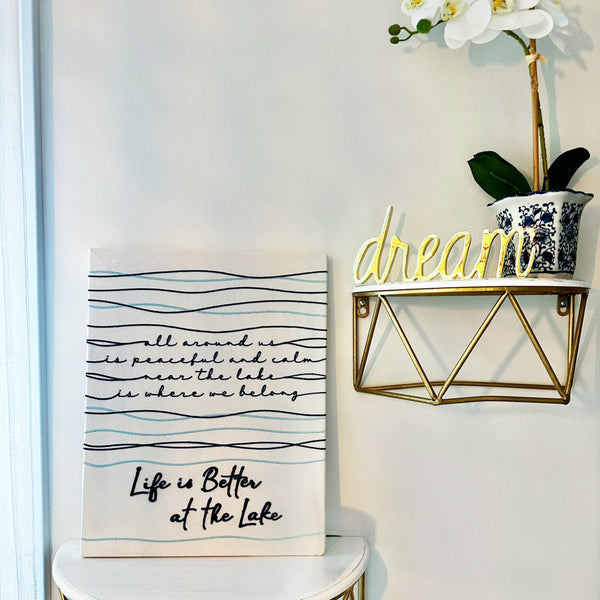 all around us
is peaceful and calm
near the lake
is where we belong
Life is Better
at the Lake
dream